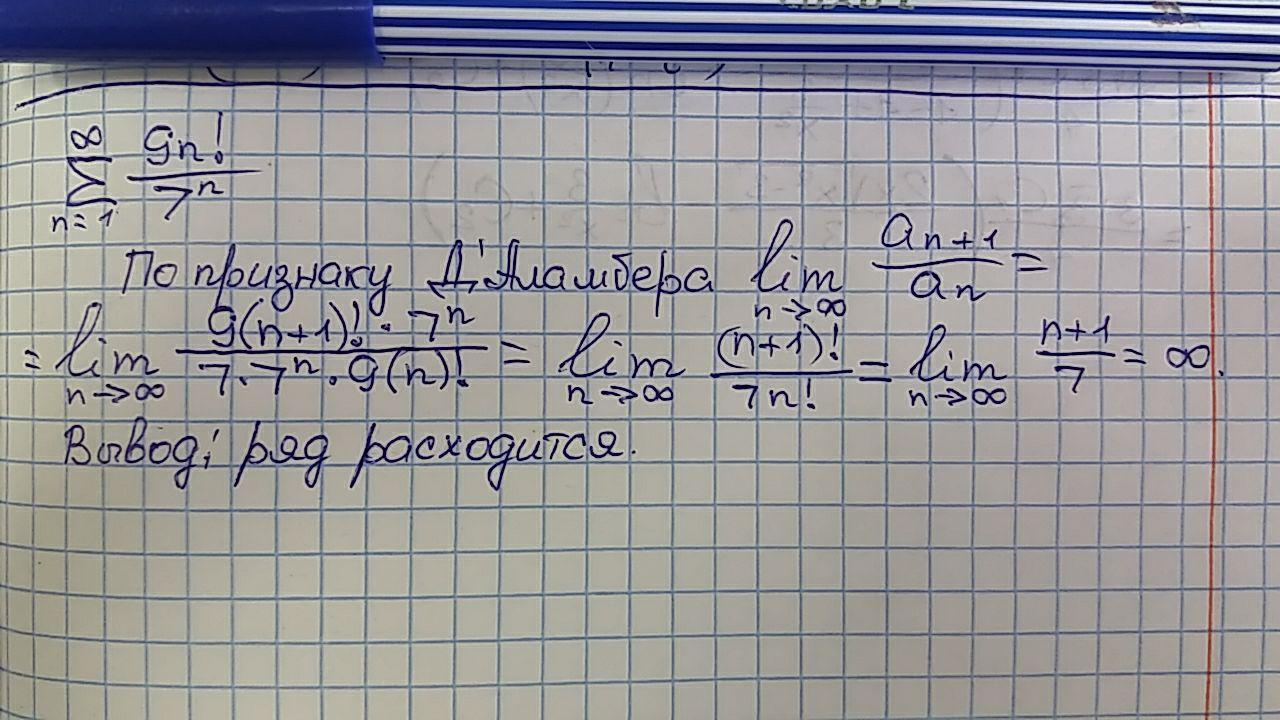 ∞
∑ 9n! / 7ⁿ
n=1
По признаку Д'Аламбера lim n→∞ aₙ₊₁ / aₙ =
= lim n→∞ 9(n+1)!·7ⁿ / 7·7ⁿ·9(n)! = lim n→∞ (n+1)! / 7n! = lim n→∞ n+1 / 7 = ∞.
Вывод: ряд расходится.